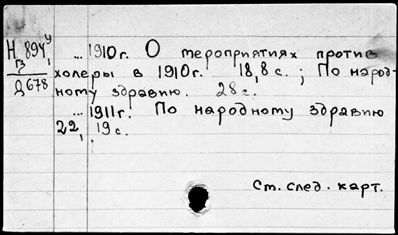 Н 894,у ...1910г. О мероприятиях против
гз холеры в 1910г. 18,8 с. ; По народ-
Д 678 ному здравию. 28 с.
...1911г. По народному здравию
22, 19 с.
См. след. карт.